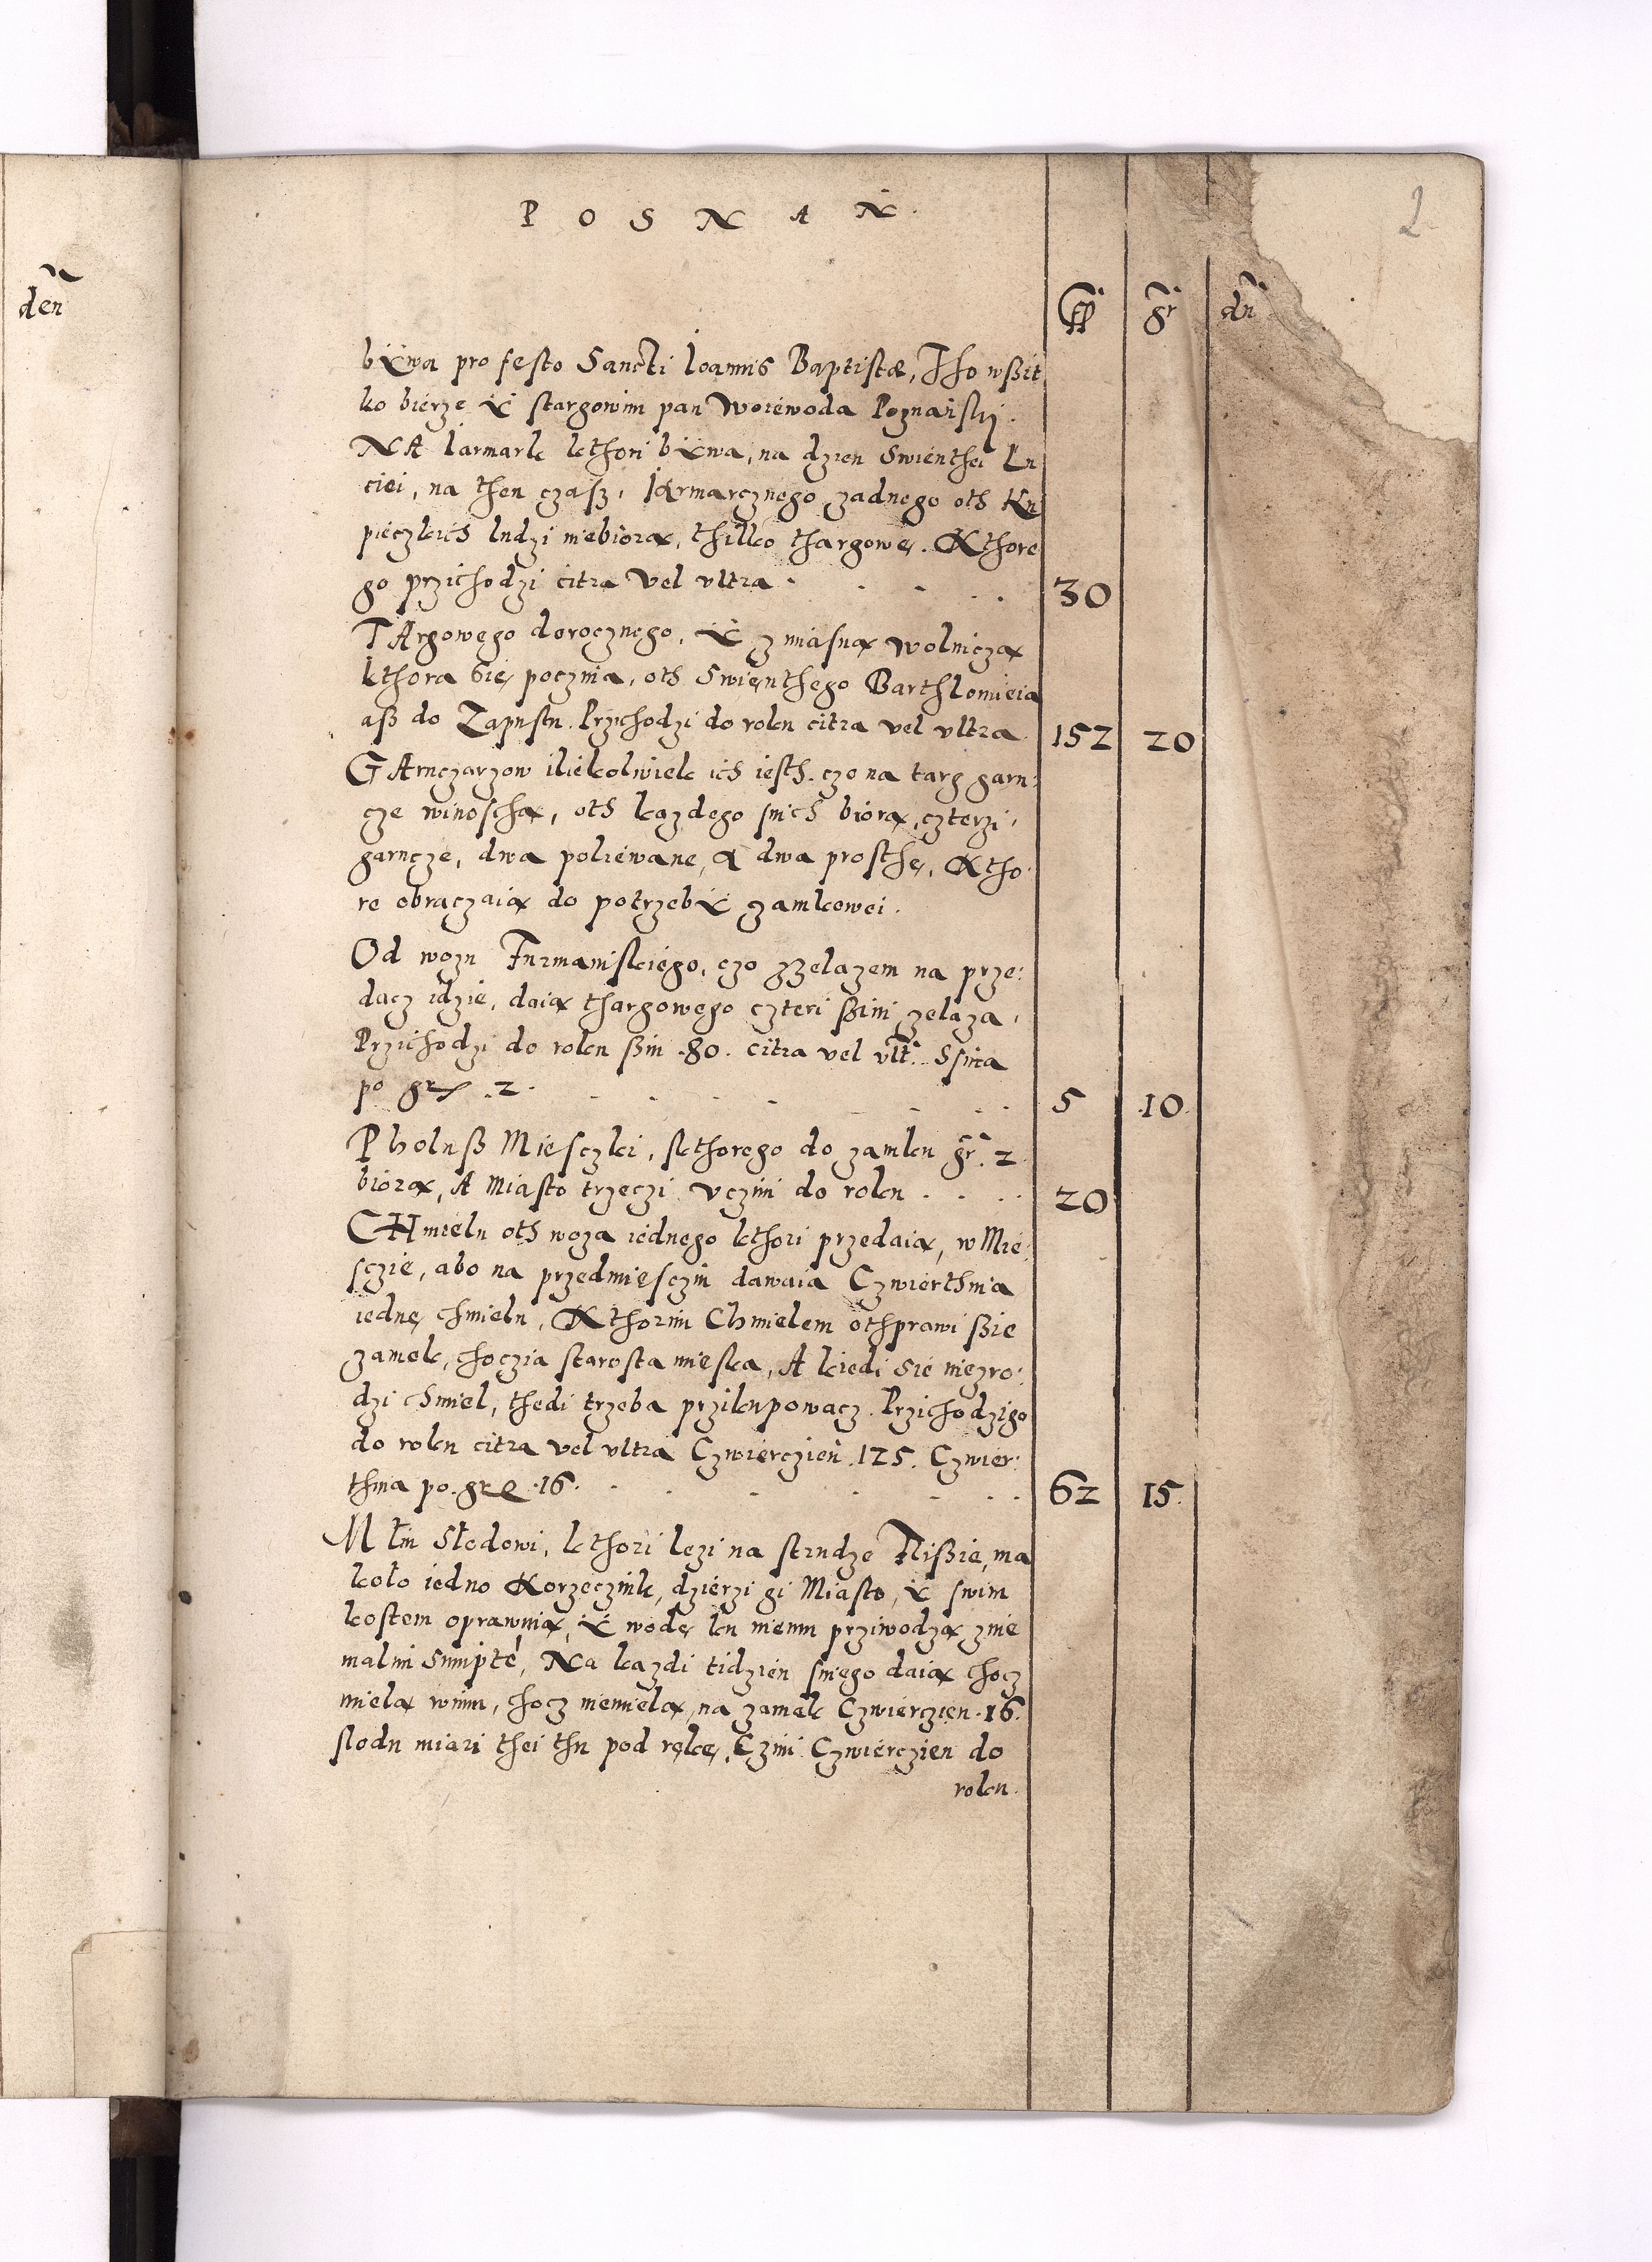 2
P O S N A Ń
den
fl gr dn
bÿwa pro festo Sancti Ioannis Baptistæ, Tho wßit
ko bierze ÿ stargowim pan Woiewoda Poznański.
NA Iarmark kthori bÿwa, na dzien Swienthei Lu
ciei, na then czaß, Iarmarcznego zadnego oth Ku
pieczkich ludzi niebiorą, thilko thargowę. Kthore
go przichodzi citra vel vltra . . . . 30
TArgowego dorocznego, ÿ z miasną wolniczą
kthora się poczina, oth Swięnthego Barthlomieia
aß do Zapustu. Przichodzi do roku citra vel vltra. 152 20
GArnczarzow iliekolwiek ich iesth. czo na targ garn:
cze winoschą, oth kazdego snich biorą, czterzi,
garncze, dwa poliewane, a dwa prosthe, Ktho
re obraczaią do potrzebÿ zamkowei.
Od wozu Furmaniskiego, czo zZelazem na prze:
dacz idzie, daią thargowego czteri ßini zelaza,
Przichodzi do roku ßin .80. citra vel vlt. Ssina
po gr .2. . . . . 5 .10.
Pholuß Miesczki, skthorego do zamku gr. 2
biorą, A Miasto trzeczi vczini do roku . . . . 20
CHmielu oth woza iednego kthori przedaią, w Mie
sczie, abo na przedmiescziu dawaia Czwierthnia
iednę chmielu, Kthorim Chmielem othprawi ßie
zamek, choczia starosta mieska, A kiedi sie niezro:
dzi chmiel, thedi trzeba przikupowacz. Przichodzigo
do roku citra vel vltra Czwierczien .125. Czwier:
thnia po. gr .16. . . . . 62 15.
Młin Słodowi, kthori lezi na strudze Nißie, ma
koło iedno Korzecznik, dzierzi gi Miasto, ÿ swim
kostem oprawuią, ÿ wodę ku niemu prziwodzą znie
malim sumptē, Na kazdi tidzien sniego daią chocz
mielą wnim, chocz niemielą, na zamek Czwierczien .16.
slodu miari thei thu pod rękę, Czini Czwierczien do
roku.